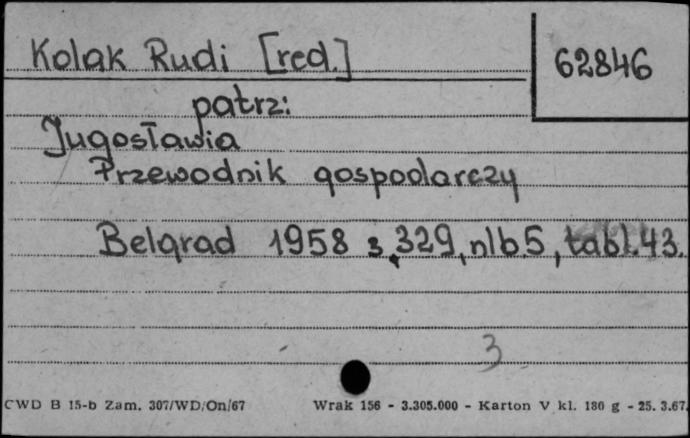 Kolak Rudi [red.]
62846
patrz:
Jugosławia
Przewodnik gospodarczy
Belgrad 1958 s. 329, nlb. 5, tabl. 43.
3
CWD B 15-b Zam. 307/WD/On/67 Wrak 156 - 3.305.000 - Karton V kl. 180 g - 25. 3.67.